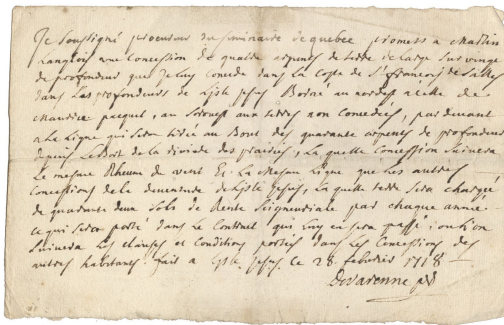 Je soussigné procureur du seminaire de quebec promets a Martin
Langlois une Concession de quatre arpents de terre de Large sur vingt
de profondeur que Je luy Concede dans la Coste de St francois de Salles
dans Les profondeurs de L'isle Jesus Borné au nordest a celle de
Maurice paquet, au Sorouest aux terres non Concedées, par devant
a La Ligne qui sera tirée au Bout des quarante arpents de profondeur
depuis Le Bort de la Riviere des prairies, La quelle Concession Suivera
Le mesme Rhumb de vent Et La mesme Ligne que Les autres
Concessions de la devanture de L'isle Jesus, La quelle terre Sera chargée
de quarante deux Sols de Rente Seigneuriale par chaque année
ce qui sera porté dans Le Contrat qui Luy en sera passé
Suivera Les clauses et Conditions portées dans Les Concessions des
autres habitants fait a L'isle Jesus ce 28 febvrier 1718